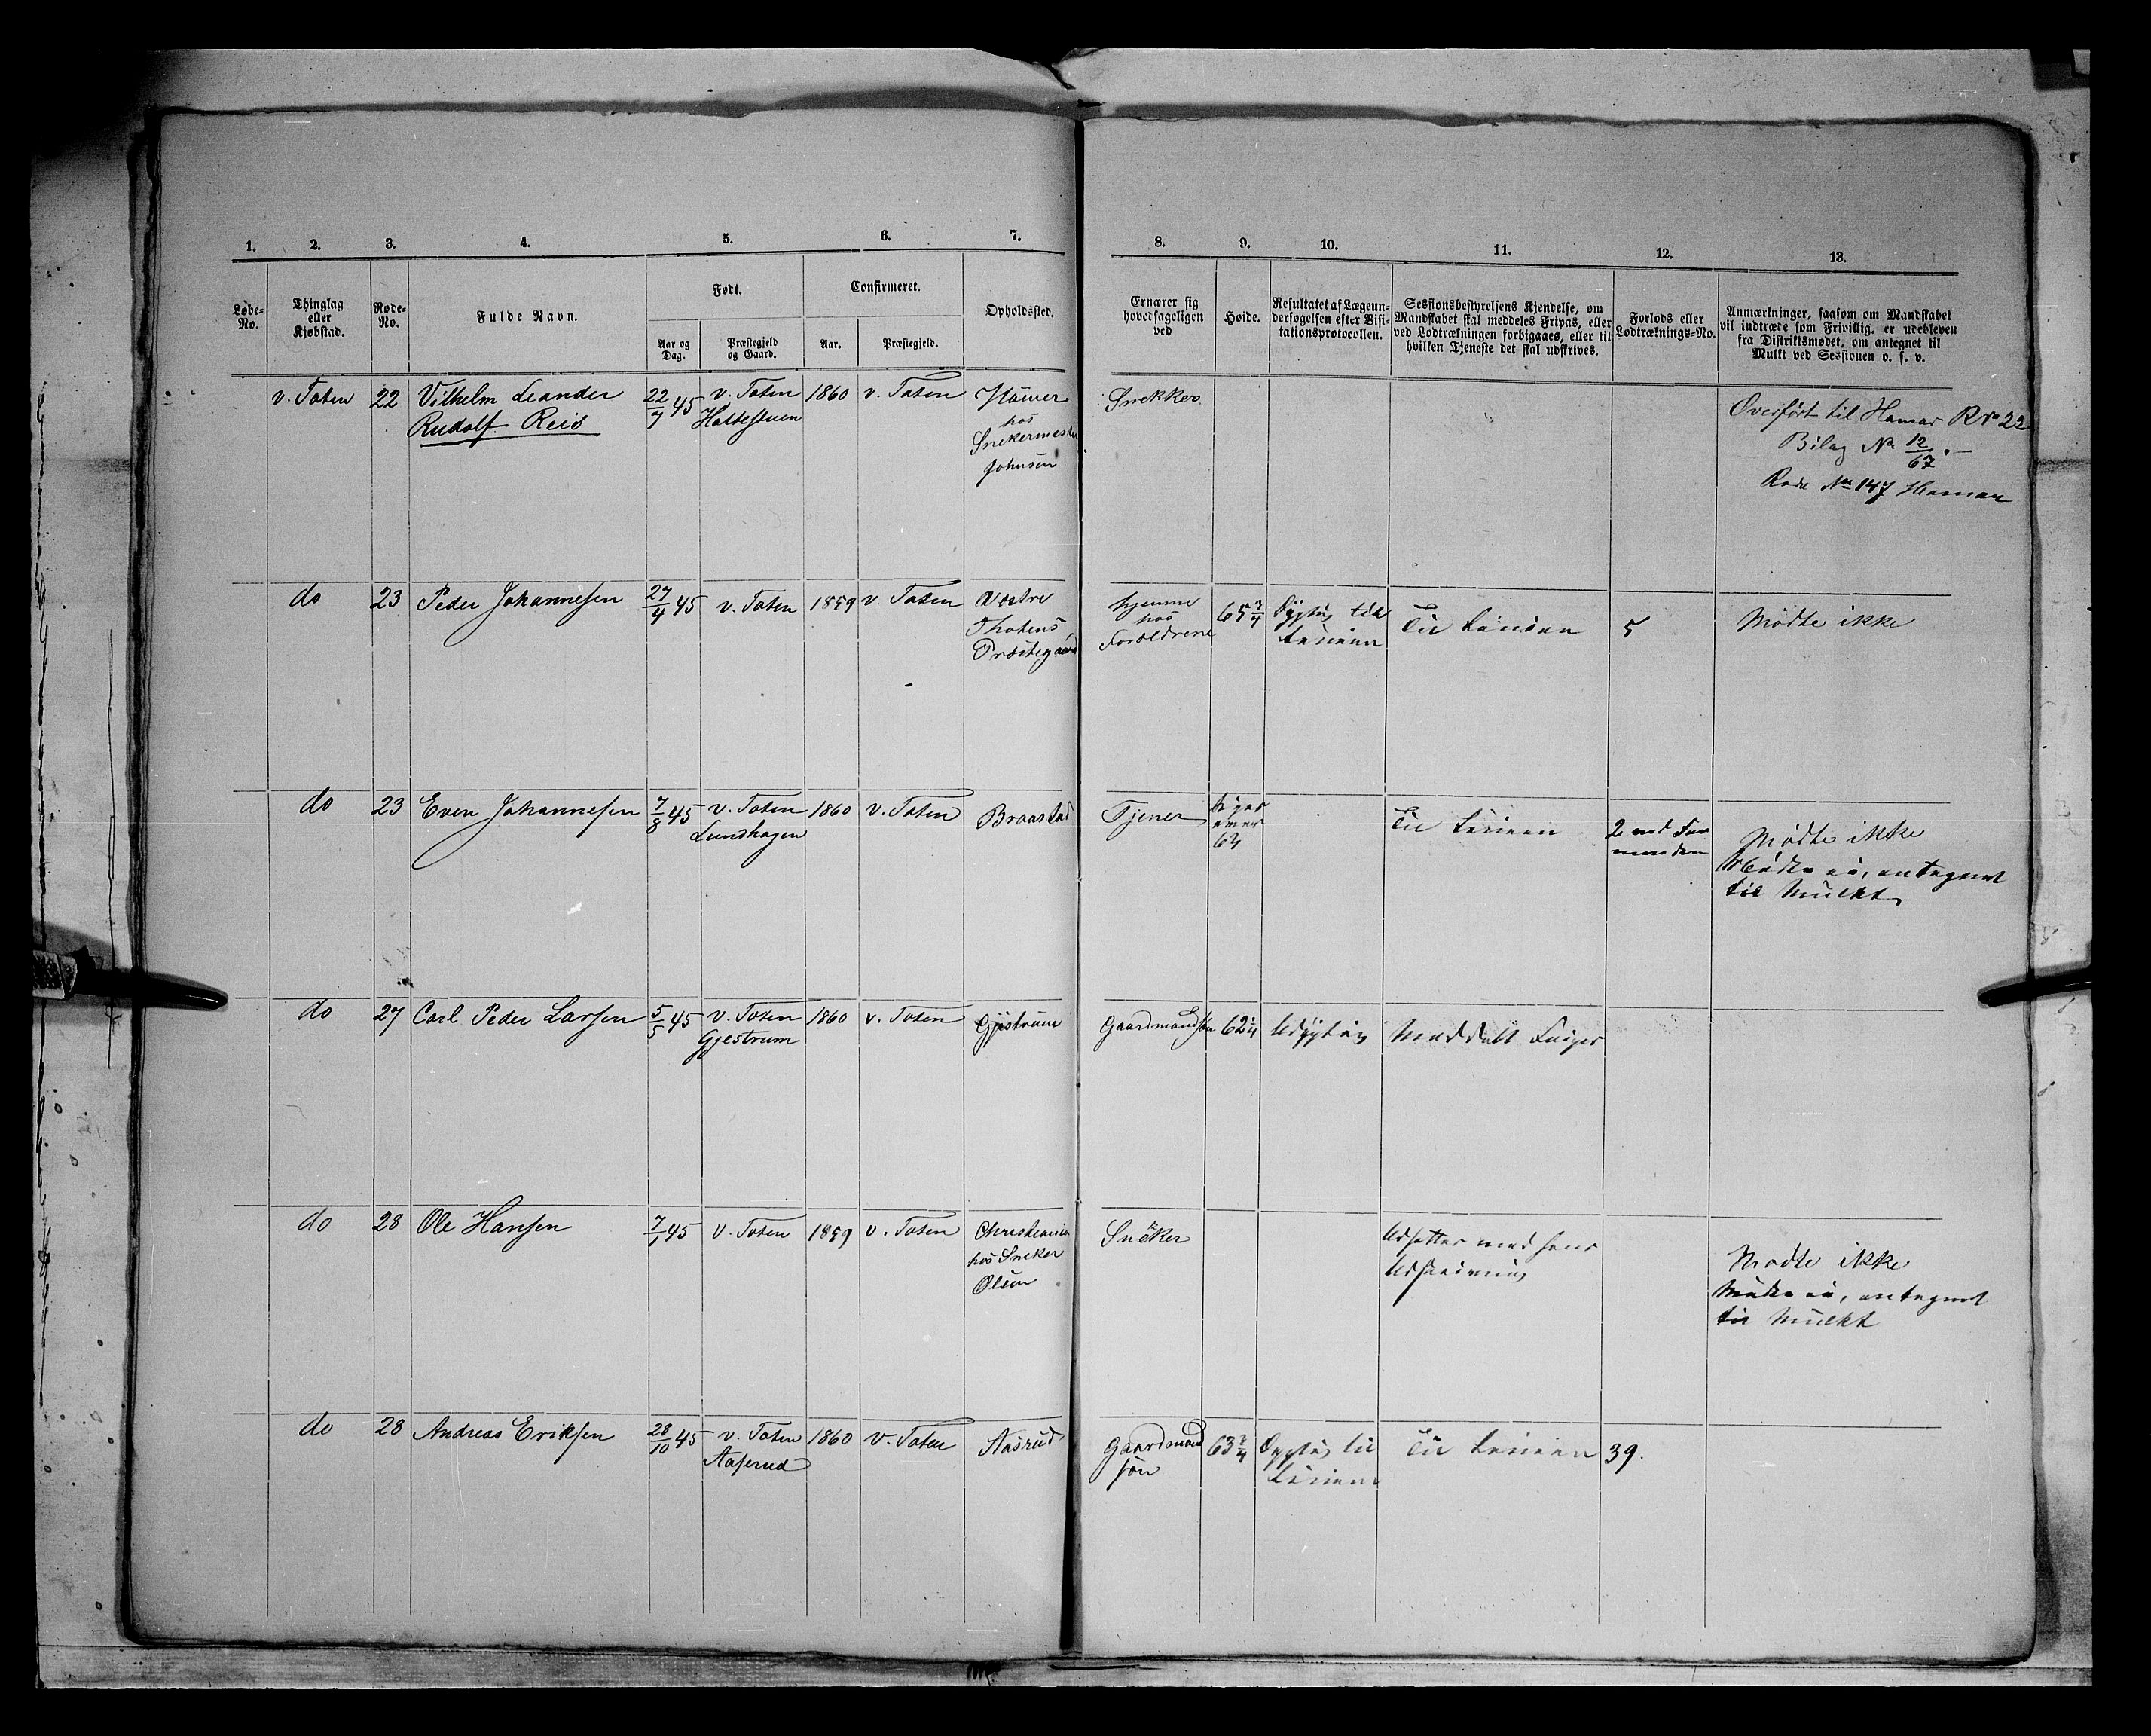 1. 2. 3. 4. 5. 6. 7. 8. 9. 10. 11. 12. 13.
Løbe-
No.
Thinglag
eller
Kjøbstad.
Rode-
No.
Fulde Navn.
Født.
Aar og
Dag.
Præstegjeld
og Gaard.
Confirmeret.
Aar.
Præstegjeld.
Opholdssted.
Ernærer sig
hovedsageligen
ved
Høide.
Resultatet af Lægeun-
dersøgelsen efter Visi-
tationsprotocollen.
Sessionsbestyrelsens Kjendelse, om
Mandskabet skal meddeles Fripas, eller
ved Lodtrækningen forbigaaes, eller til
hvilken Tjeneste det skal udskrives.
Forlods eller
Lodtræknings-No.
Anmærkninger, saasom om Mandskabet
vil indtræde som Frivillig, er udebleven
fra Distriktsmødet, om antegnet til
Mulkt ved Sessionen o. s. v.
v. Toten 22 Vilhelm Leander
Rudolf Reis
22/7 45 v. Toten
Holtestuen
1860 v. Toten
Hamer
hos
Snekermester
Johnsen
Snekker
Overført til Hamar R No 22
Bilag No 12/67.—
Rode No 147 Hamar
do 23 Peder Johannesen 27/4 45 v. Toten 1859 v. Toten
Vestre
Thotens
Præstegaard
hjemme
hos
Foreldrene
65 3/4
Dygtig til
Linien
Til Linien 5 Mødte ikke
do 23 Even Johannesen 7/8 45 v. Toten
Lundhagen
1860 v. Toten Braastad Tjener
64
Til Linien
2
Mødte ikke
Mødte ei, antegnet
til Mulkt
do 27 Carl Peder Larsen 5/5 45 v. Toten
Gjestrum
1860 v. Toten Gjestrum Gaardmandsøn 62 1/4 Udygtig Meddelt Fripas
do 28 Ole Hansen 7/1 45 v. Toten 1859 v. Toten
Christiania
hos Sneker
Olsen
Sneker
Udsettes med hans
Udskrivning
Mødte ikke
Mødte ei, antegnet
til Mulkt
do 28 Andreas Eriksen 28/10 45 v. Toten
Aaserud
1860 v. Toten Aasrud
Gaardmand
søn
63 3/4
Dygtig til
Linien
Til Linien 39.